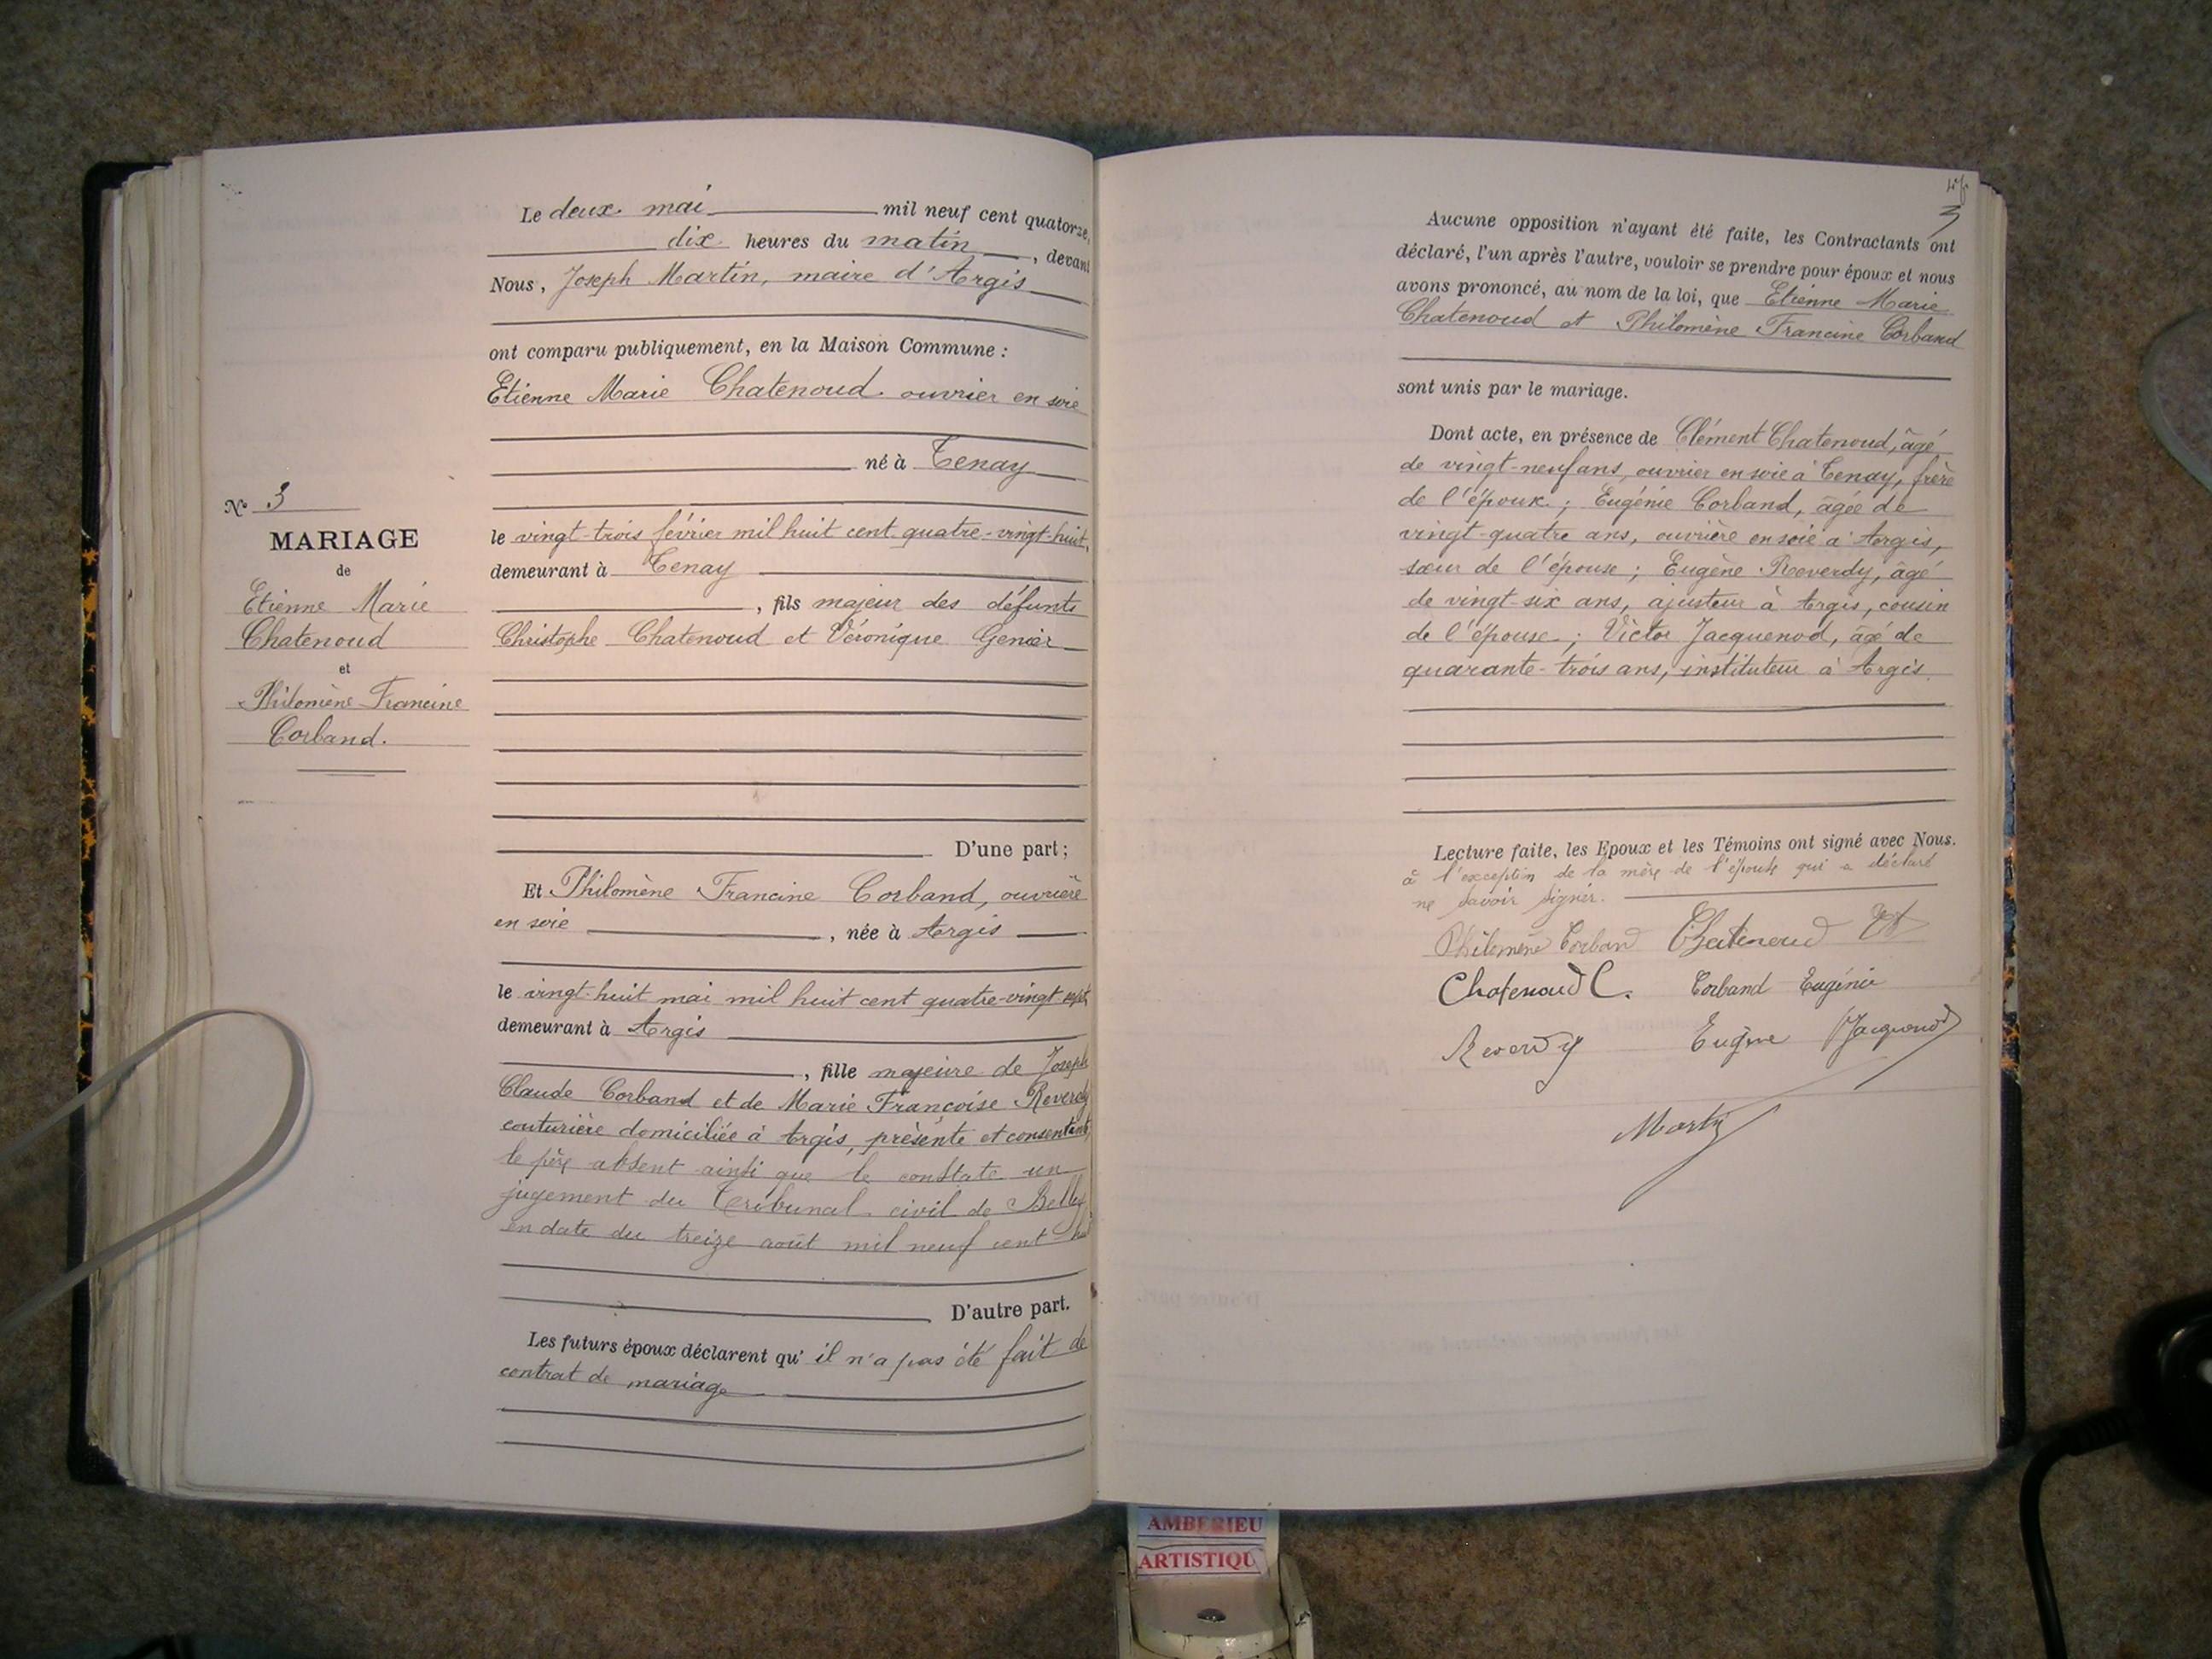 Le deux mai mil neuf cent quatorze,
dix heures du matin, devant
Nous, Joseph Martin, maire d'Argis
ont comparu publiquement, en la Maison Commune :
Etienne Marie Chatenoud ouvrier en soie
né à Tenay
le vingt-trois février mil huit cent quatre-vingt-huit,
demeurant à Tenay
, fils majeur des défunts
Christophe Chatenoud et Véronique Genier
D'une part ;
Et Philomène Francine Corband, ouvrière
en soie, née à Argis
le vingt-huit mai mil huit cent quatre-vingt-sept
demeurant à Argis
, fille majeure de Joseph
Claude Corband et de Marie Françoise Reverdy
couturière domiciliée à Argis, présente et consentante
le père absent ainsi que le constate un
jugement du Tribunal civil de Belley
en date du treize août mil neuf cent
D'autre part.
Les futurs époux déclarent qu'il n'a pas été fait de
contrat de mariage
N° 3
MARIAGE
de
Etienne Marie
Chatenoud
et
Philomène Francine
Corband.
3
Aucune opposition n'ayant été faite, les Contractants ont
déclaré, l'un après l'autre, vouloir se prendre pour époux et nous
avons prononcé, au nom de la loi, que Etienne Marie
Chatenoud et Philomène Francine Corband
sont unis par le mariage.
Dont acte, en présence de Clément Chatenoud, âgé
de vingt-neuf ans, ouvrier en soie à Tenay, frère
de l'époux ; Eugénie Corband, âgée de
vingt-quatre ans, ouvrière en soie à Argis,
sœur de l'épouse ; Eugène Reverdy, âgé
de vingt-six ans, ajusteur à Argis, cousin
de l'épouse ; Victor Jacquenod, âgé de
quarante-trois ans, instituteur à Argis.
Lecture faite, les Epoux et les Témoins ont signé avec Nous.
à l'exception de la mère de l'épouse qui a déclaré
ne savoir signer.
Philomène Corband Chatenoud Et
Chatenoud C. Corband Eugénie
Reverdy Eugène Jacquenod
Martin
AMBERIEU
ARTISTIQU